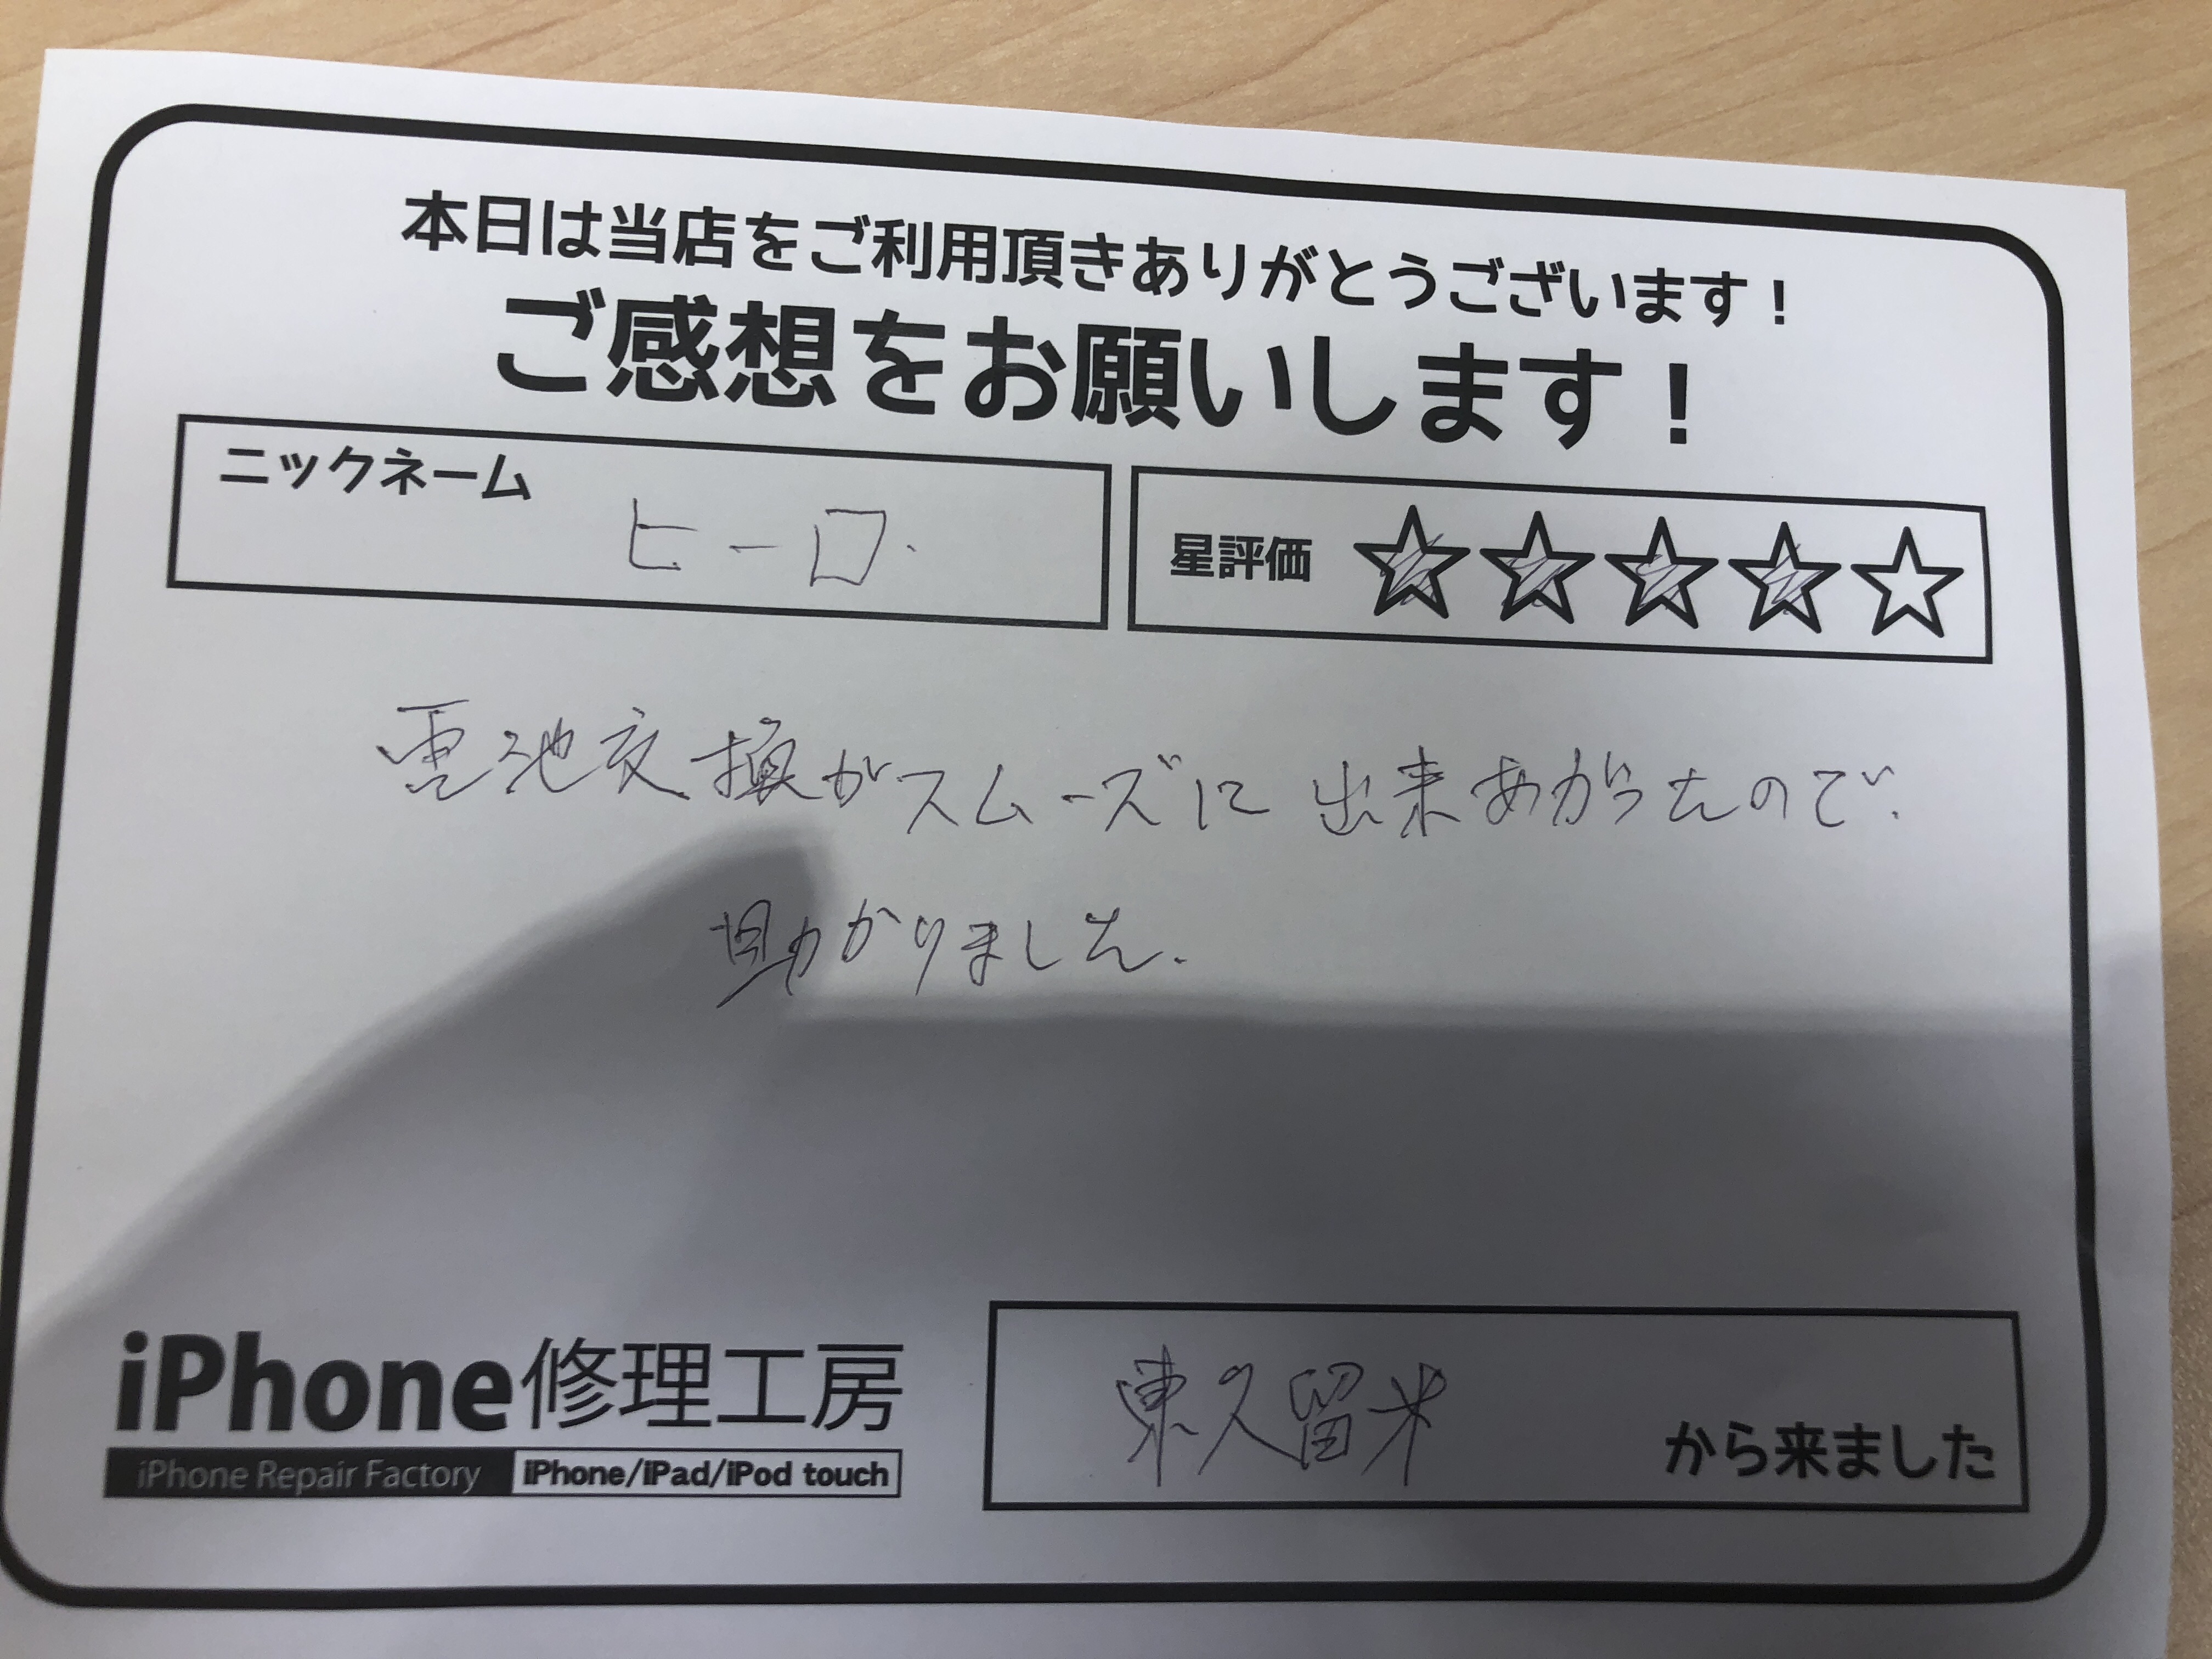 本日は当店をご利用頂きありがとうございます！
ご感想をお願いします！
ニックネーム
ヒーロー
星評価 ☆☆☆☆☆
電池交換がスムーズに出来あがったので、
助かりました.
iPhone修理工房
iPhone Repair Factory iPhone/iPad/iPod touch
東久留米 から来ました